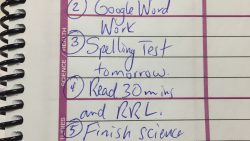 ② Google Word
Work
③ Spelling Test
tomorrow.
④ Read 30 mins
and RRL.
⑤ Finish science
SCIENCE / HEALTH